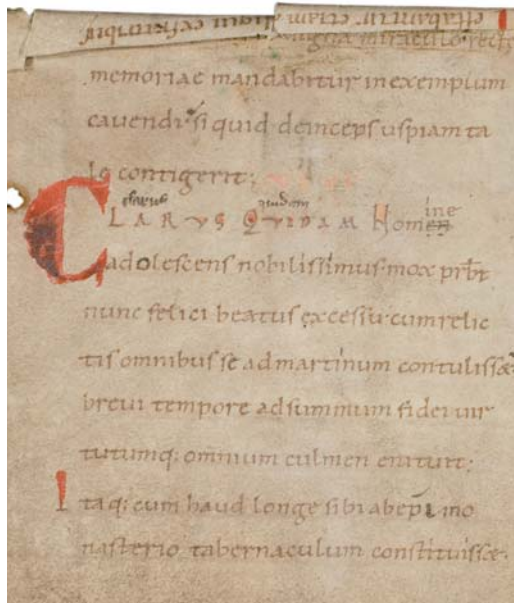 magna miraculo
memoriae mandabitur in exemplum
cauendi si quid deinceps uspiam ta
le contigerit;
clarus quidam
CLARUS QUIDAM Nomen ine
adolescens nobilissimus mox prbr
nunc felici beatus excessu cum relic
tis omnibus se ad martinum contulisset
breui tempore ad summum fidei uir
tutumq; omnium culmen enituit;
Itaq; cum haud longe sibi ab epi mo
nasterio tabernaculum constituisset